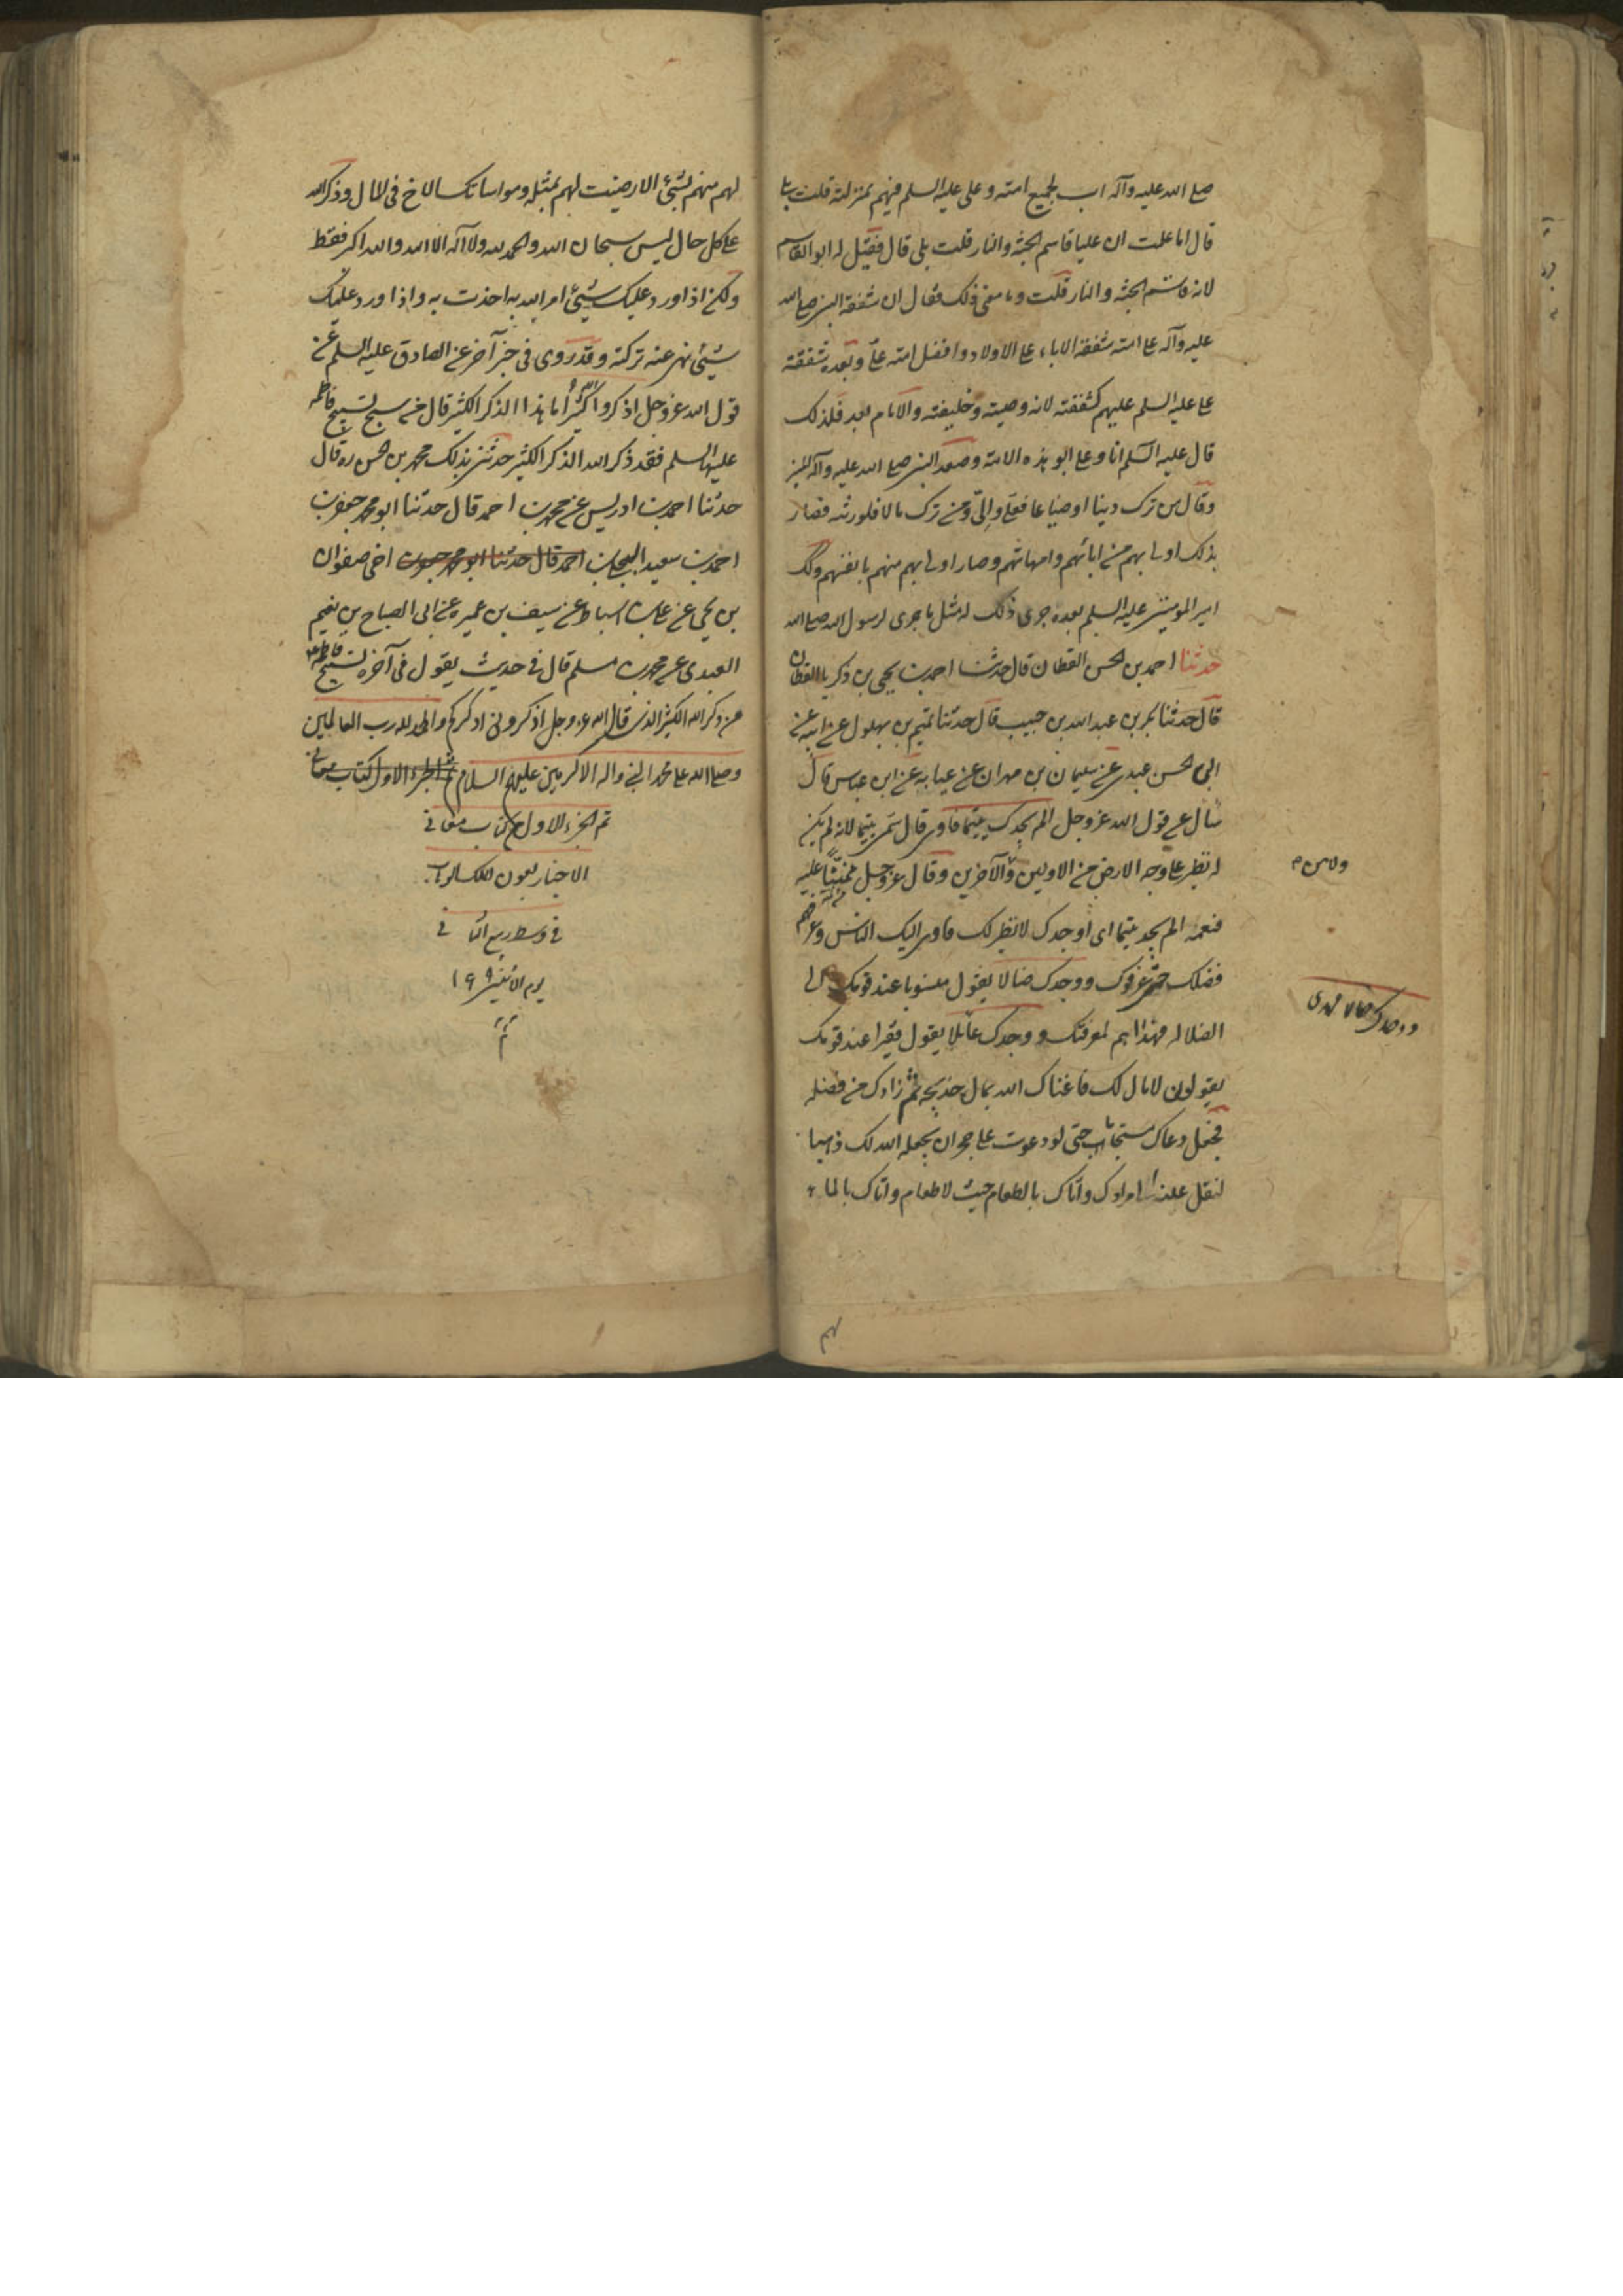 صلى الله عليه وآله اب لجميع امته وعلى عليه السلم فيهم بمنزلته قلت بلى
قال اما علمت ان عليا قاسم الجنة والنار قلت بلى قال فقيل له ابوالقاسم
لانه قاسم الجنة والنار قلت وما معنى ذلك فقال ان شفقة النبي صلى الله
عليه وآله على امته شفقة الاباء على الاولاد وافضل امته على وبعده شفقة
على عليه السلم عليهم كشفقته لانه وصيته وخليفته والامام بعده فلذلك
قال عليه السلم انا وعلى ابو هذه الامة وصعد النبي صلى الله عليه وآله المنبر
وقال من ترك دينا او ضياعا فعلى والىّ ومن ترك مالا فلورثته فصار
بذلك اولى بهم من ابائهم وامهاتهم وصار اولى بهم منهم بانفسهم وكذلك
امير المومنين عليه السلم بعده جرى ذلك له مثل ما جرى لرسول الله صلى الله
حدثنا احمد بن الحسن القطان قال حدثنا احمد بن يحيى بن زكريا القطان
قال حدثنا بكر بن عبد الله بن حبيب قال حدثنا تميم بن بهلول عن ابيه عن
ابى الحسن عبدى عن سليمان بن مهران عن عبايه عن ابن عباس قال
سأل عن قول الله عز وجل الم يجدك يتيما فاوى قال سمى يتيما لانه لم يكن
له نظير على وجه الارض من الاولين والآخرين وقال عز وجل ممتنا عليه
نعمه الم يجدك يتيما اى اوجدك لا نظير لك فاوى اليك الناس وعرفهم
فضلك حتى عرفوك ووجدك ضالا يقول منسوبا عند قومك الى
الضلاله فهذا هم لمعرفتك ووجدك عائلا يقول فقيرا عند قومك
يقولون لا مال لك فاغناك الله بمال خديجه ثم زادك من فضله
فجعل دعاك مستجابا حتى لو دعوت على حجر ان يجعله الله لك ذهبا
لنقل عينه الى مرادك واتاك بالطعام حيث لا طعام واتاك بالماء
ووجدك ضالا فهدى
لهم منهم بشئ الا رضيت لهم بمثله ومواساتك الاخ فى المال وذكر الله
على كل حال ليس سبحان الله والحمد لله ولا آله الا الله والله اكبر فقط
ولكن اذا ورد عليك شيئ امر الله به اخذت به واذا ورد عليك
شيئ نهى عنه تركته وقد روى فى خبر آخر عن الصادق عليه السلم عن
قول الله عز وجل اذكروا الله ذكرا كثيرا ما هذا الذكر الكثير قال من سبح تسبيح فاطمه
عليها السلم فقد ذكر الله الذكر الكثير حدثنى بذلك محمد بن الحسن ره قال
حدثنا احمد بن ادريس عن محمد بن احمد قال حدثنا ابو محمد جعفر بن
احمد بن سعيد البجلى ابن احمد قال حدثنا ابو محمد جعفر بن اخى صفوان
بن يحيى عن على بن اسباط عن سيف بن عميره عن ابى الصباح بن نعيم
العبدى عن محمد بن مسلم قال فى حديث يقول فى آخره تسبيح فاطمه
من ذكر الله الكثير الذى قال الله عز وجل اذكرونى اذكركم والحمد لله رب العالمين
وصلى الله على محمد النبى واله الاكرمين عليهم السلام تم الجزء الاول كتاب معانى
تم الجزء الاول من كتاب معانى
الاخبار بعون الملك الوهاب
فى وسط ربيع الثانى
يوم الاثنين
تم